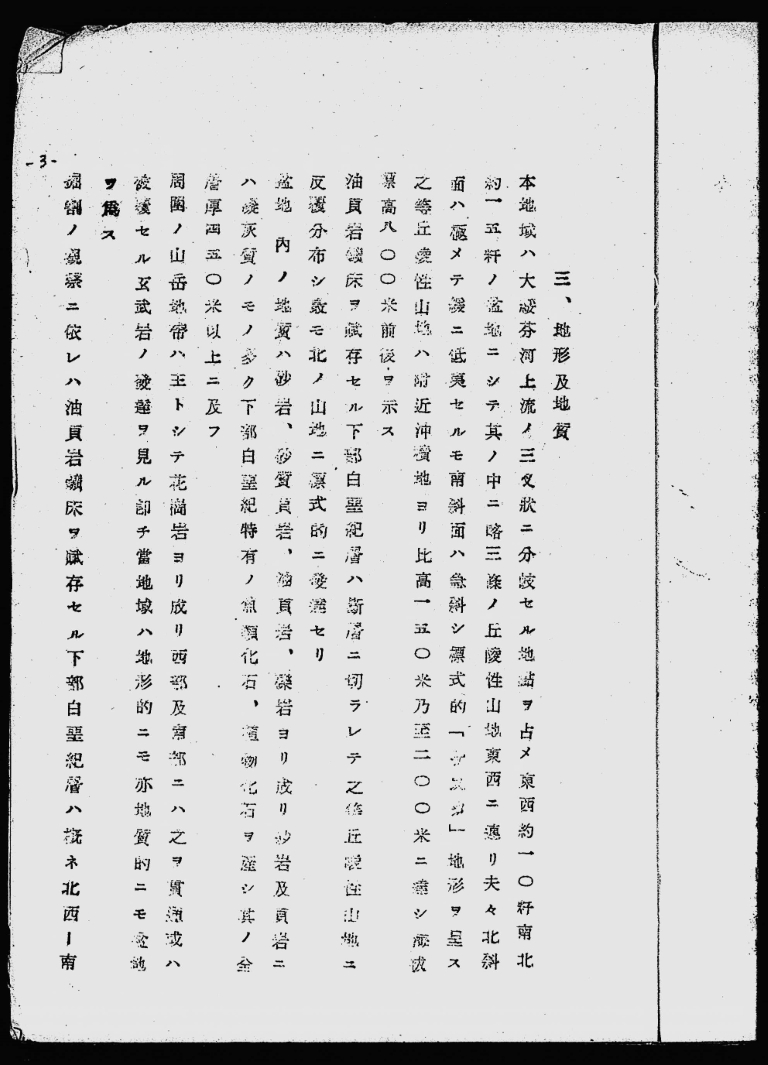 -3-
三、地形及地質
本地域ハ大綏芬河上流ノ三叉狀ニ分岐セル地點ヲ占メ東西約一〇粁南北
約一五粁ノ盆地ニシテ其ノ中ニ略三條ノ丘陵性山地東西ニ連リ夫々北斜
面ハ極メテ緩ニ低夷セルモ南斜面ハ急斜シ標式的「ケスタ」地形ヲ呈ス
之等丘陵性山地ハ附近沖積地ヨリ比高一五〇米乃至二〇〇米ニ達シ海拔
標高八〇〇米前後ヲ示ス
油頁岩鑛床ヲ賦存セル下部白堊紀層ハ斷層ニ切ラレテ之等丘陵性山地ニ
反覆分布シ最モ北ノ山地ニ標式的ニ發達セリ
盆地內ノ地質ハ砂岩、砂質頁岩、油頁岩、礫岩ヨリ成リ砂岩及頁岩ニ
ハ凝灰質ノモノ多ク下部白堊紀特有ノ魚類化石、植物化石ヲ產シ其ノ全
層厚四五〇米以上ニ及フ
周圍ノ山岳地帶ハ主トシテ花崗岩ヨリ成リ西部及南部ニハ之ヲ貫通或ハ
被覆セル玄武岩ノ發達ヲ見ル卽チ當地域ハ地形的ニモ亦地質的ニモ盆地
ヲ爲ス
掘割ノ觀察ニ依レハ油頁岩鑛床ヲ賦存セル下部白堊紀層ハ槪ネ北西ー南